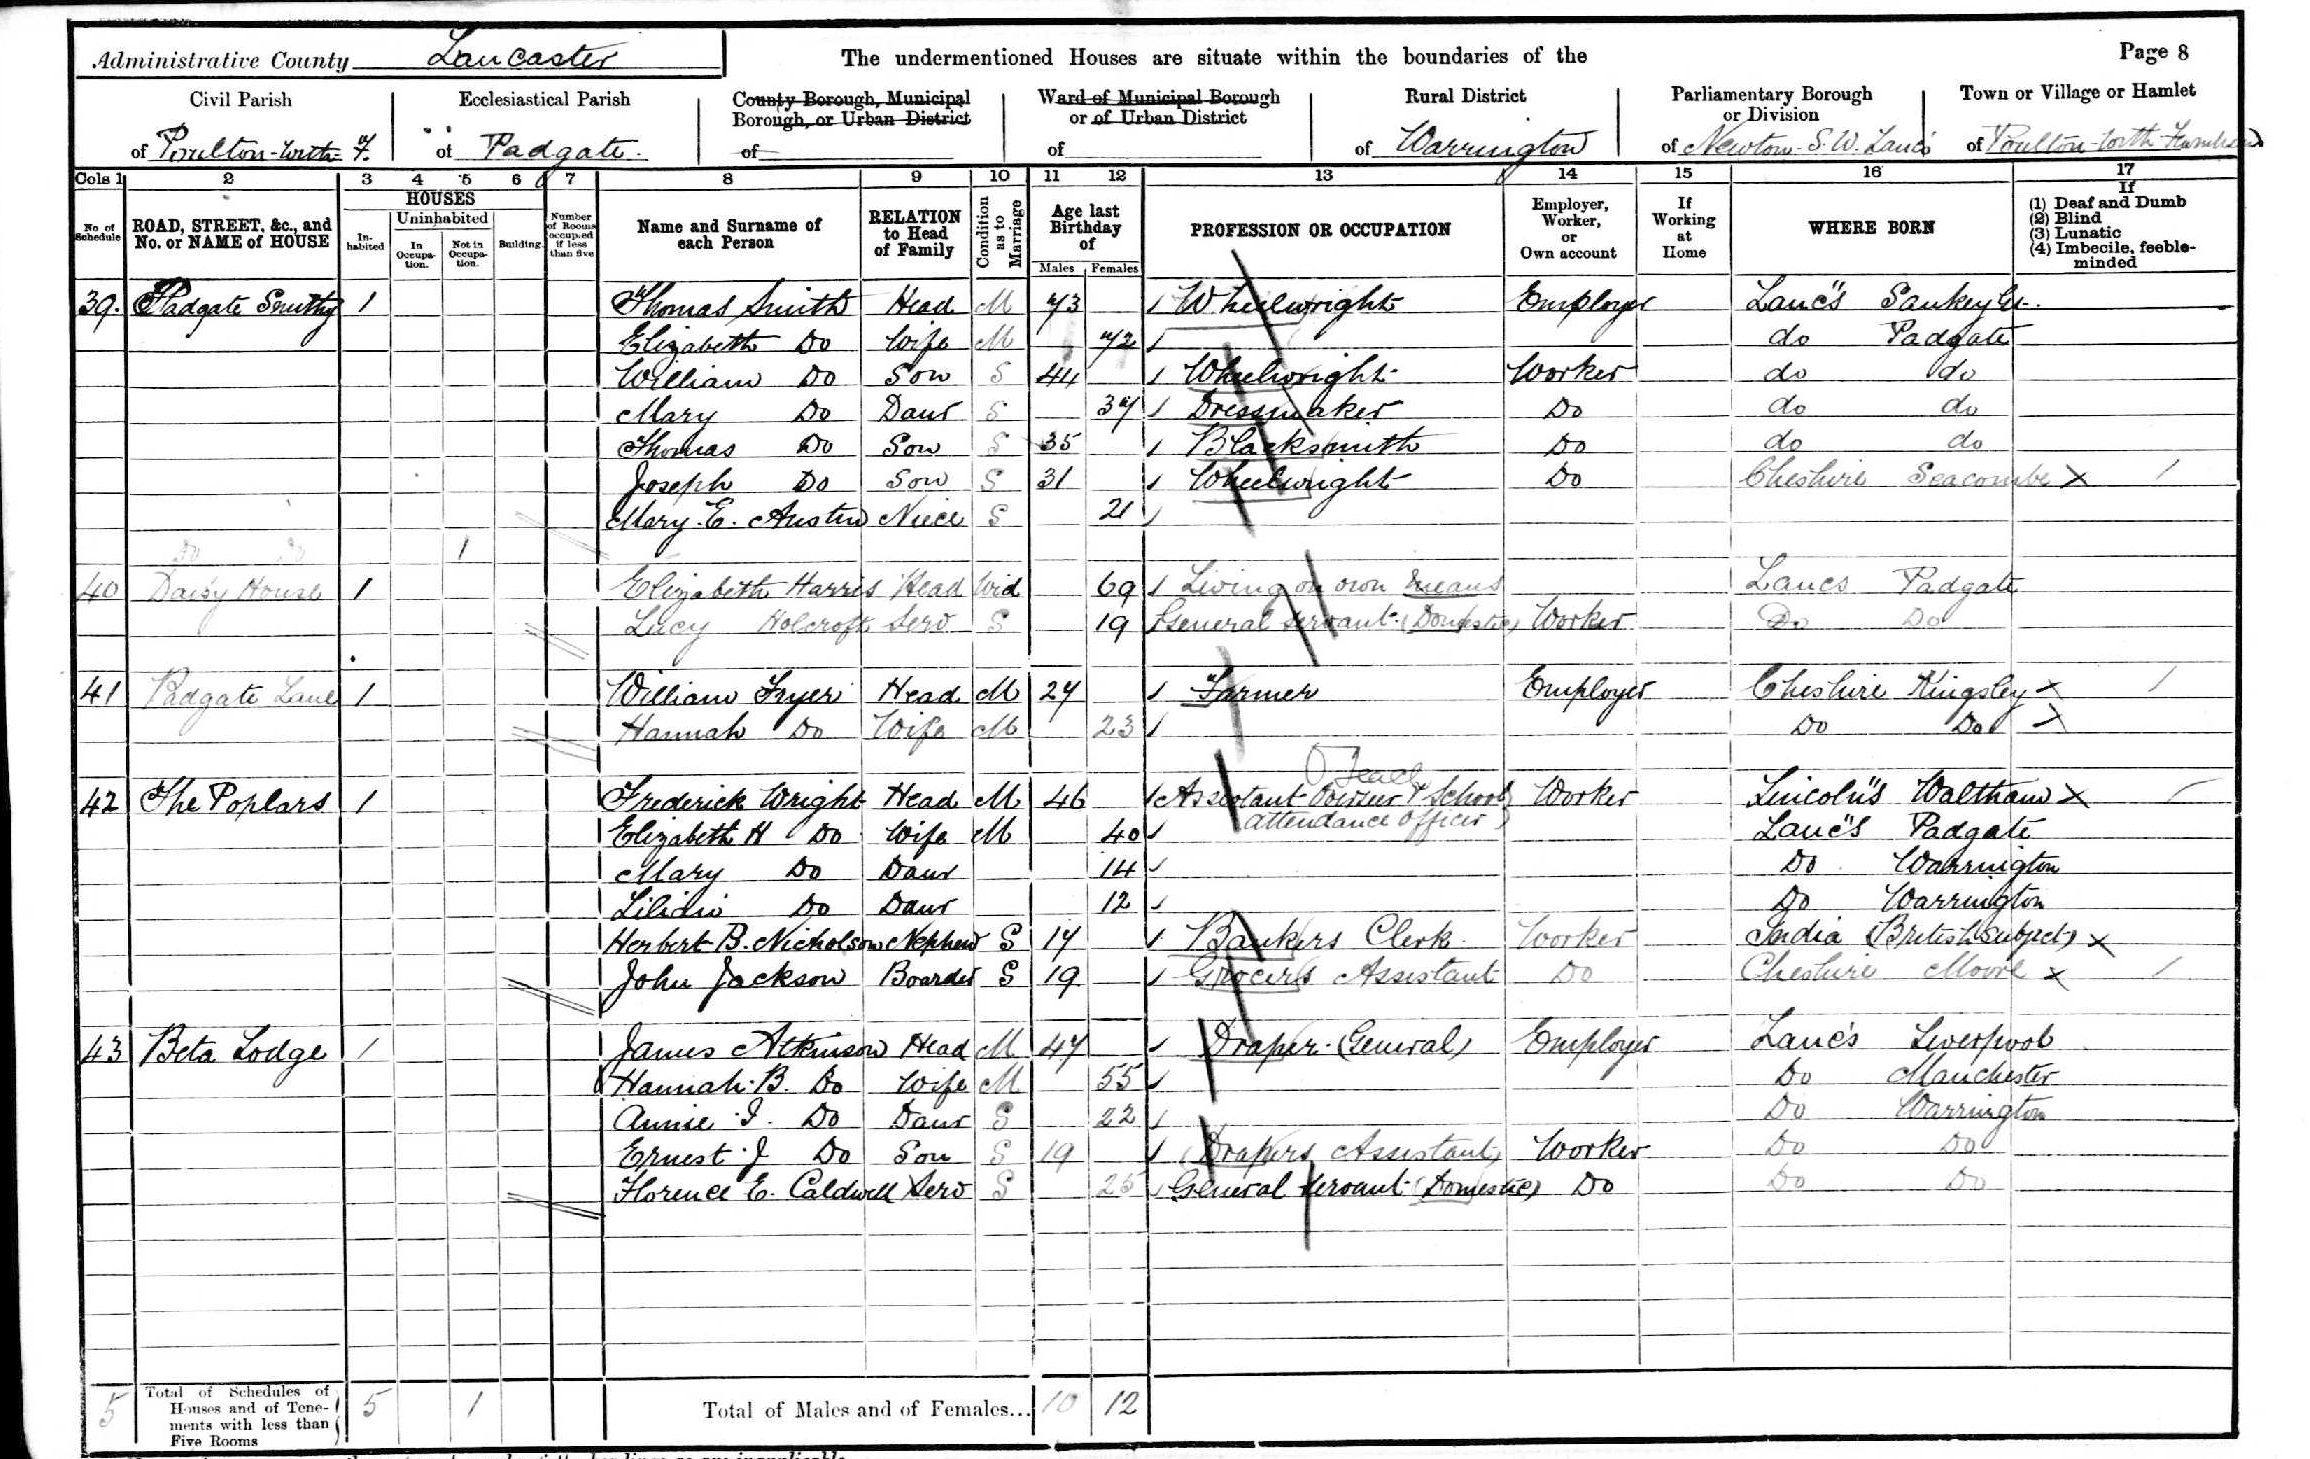 Administrative County Lancaster The undermentioned Houses are situate within the boundaries of the Page 8
Civil Parish Ecclesiastical Parish County Borough, Municipal Borough, or Urban District Ward of Municipal Borough or of Urban District Rural District Parliamentary Borough or Division Town or Village or Hamlet
of Poulton-with-F. of Padgate. of of of Warrington of Newton-S.W. Lancs of Poulton-with-Fearnhead
Cols 1 2 3 4 5 6 7 8 9 10 11 12 13 14 15 16 17
No of Schedule ROAD, STREET, &c., and No. or NAME of HOUSE HOUSES Inhabited Uninhabited In Occupation. Not in Occupation. Building. Number of Rooms occupied if less than five Name and Surname of each Person RELATION to Head of Family Condition as to Marriage Age last Birthday of Males Females PROFESSION OR OCCUPATION Employer, Worker, or Own account If Working at Home WHERE BORN If (1) Deaf and Dumb (2) Blind (3) Lunatic (4) Imbecile, feeble-minded
39. Padgate Smithy 1 Thomas Smith Head M 73 Wheelwright Employer Lanc's Sankey Gt.
Elizabeth Do Wife M 72 do Padgate
William Do Son S 44 Wheelwright Worker do do
Mary Do Daur S 37 Dressmaker Do do do
Thomas Do Son S 35 Blacksmith Do do do
Joseph Do Son S 31 Wheelwright Do Cheshire Seacombe X
Mary. E. Austin Niece S 21
Do Do 1
40 Daisy House 1 Elizabeth Harris Head Wid 69 Living on own means Lancs Padgate
Lucy Holcroft Serv S 19 General Servant (Domestic) Worker Do Do
41 Padgate Lane 1 William Fryer Head M 27 Farmer Employer Cheshire Kingsley X
Hannah Do Wife M 23 Do Do X
42 The Poplars 1 Frederick Wright Head M 46 Assistant Overseer & School attendance officer Worker Lincoln's Waltham X
Elizabeth H Do Wife M 40 Lanc's Padgate
Mary Do Daur 14 Do Warrington
Lilian Do Daur 12 Do Warrington
Herbert B. Nicholson Nephew S 17 Bankers Clerk Worker India (British Subject) X
John Jackson Boarder S 19 Grocers Assistant Do Cheshire Moore X
43 Beta Lodge 1 James Atkinson Head M 47 Draper. (General) Employer Lanc's Liverpool
Hannah. B. Do Wife M 55 Do Manchester
Annie I. Do Daur S 22 Do Warrington
Ernest J Do Son S 19 (Drapers Assistant) Worker Do Do
Florence E. Caldwell Serv S 25 General Servant (Domestic) Do Do Do
5 Total of Schedules of Houses and of Tenements with less than Five Rooms 5 1 Total of Males and of Females... 10 12